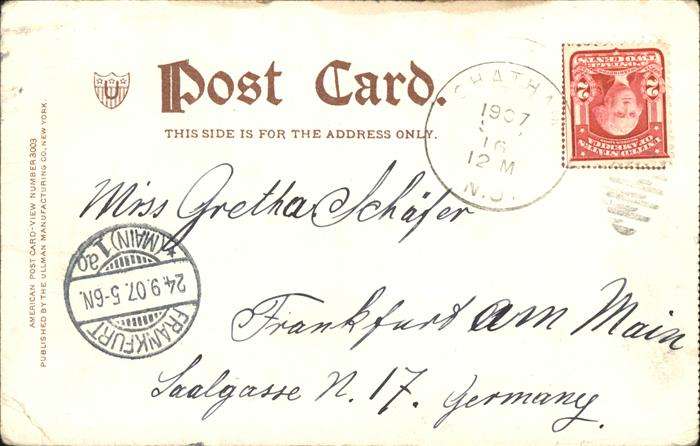 Post Card.
THIS SIDE IS FOR THE ADDRESS ONLY.
AMERICAN POST CARD-VIEW NUMBER 3003
PUBLISHED BY THE ULLMAN MANUFACTURING CO, NEW YORK.
U
CHATHAM
1907
16
12 M
N.J.
2 2
Miss Gretha Schäfer
FRANKFURT
(MAIN) 1
24.9.07. 5-6N.
Frankfurt am Main
Saalgasse N. 17. Germany.